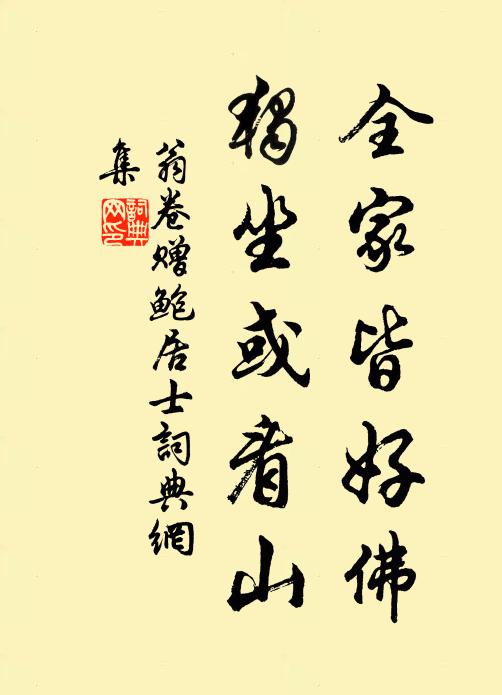 全家皆好佛
獨坐或看山
翁卷赠鲍居士詞典網
集
詞典
网印